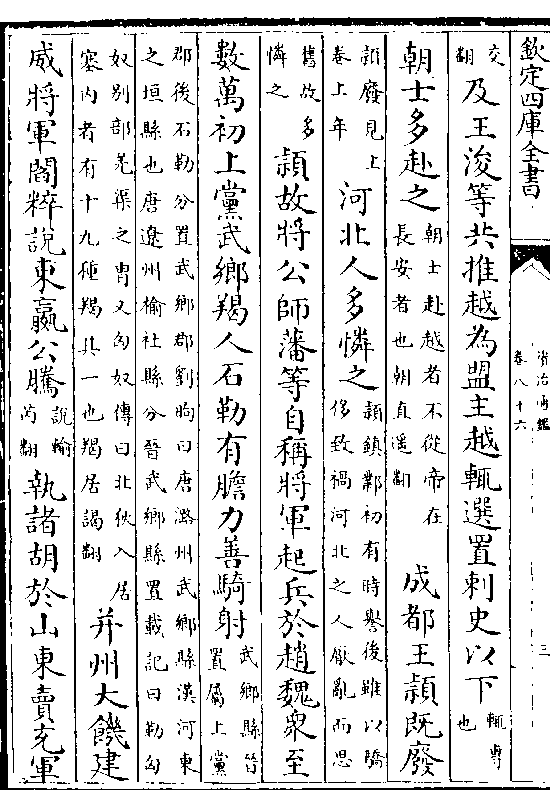 欽定四庫全書
資治通鑑
卷八十六
三
交翻及王浚等共推越為盟主越輒選置刺史以下輒專也
朝士多赴之朝士赴越者不從帝在長安者也朝直遥翻成都王頴既廢
頴廢見上卷上年河北人多憐之頴鎮鄴初有時譽後雖以驕侈致禍河北之人厭亂而思
舊故多憐之頴故將公師藩等自稱將軍起兵於趙魏衆至
數萬初上黨武鄉羯人石勒有膽力善騎射武鄉縣晉置屬上黨
郡後石勒分置武鄉郡劉昫曰唐潞州武鄉縣漢河東之垣縣也唐遼州榆社縣分晉武鄉縣置載記曰勒匈
奴别部羌渠之胄又匈奴傳曰北狄入居塞内者有十九種羯其一也羯居謁翻并州大饑建
威將軍閻粹說東嬴公騰說輸芮翻執諸胡於山東賣充軍